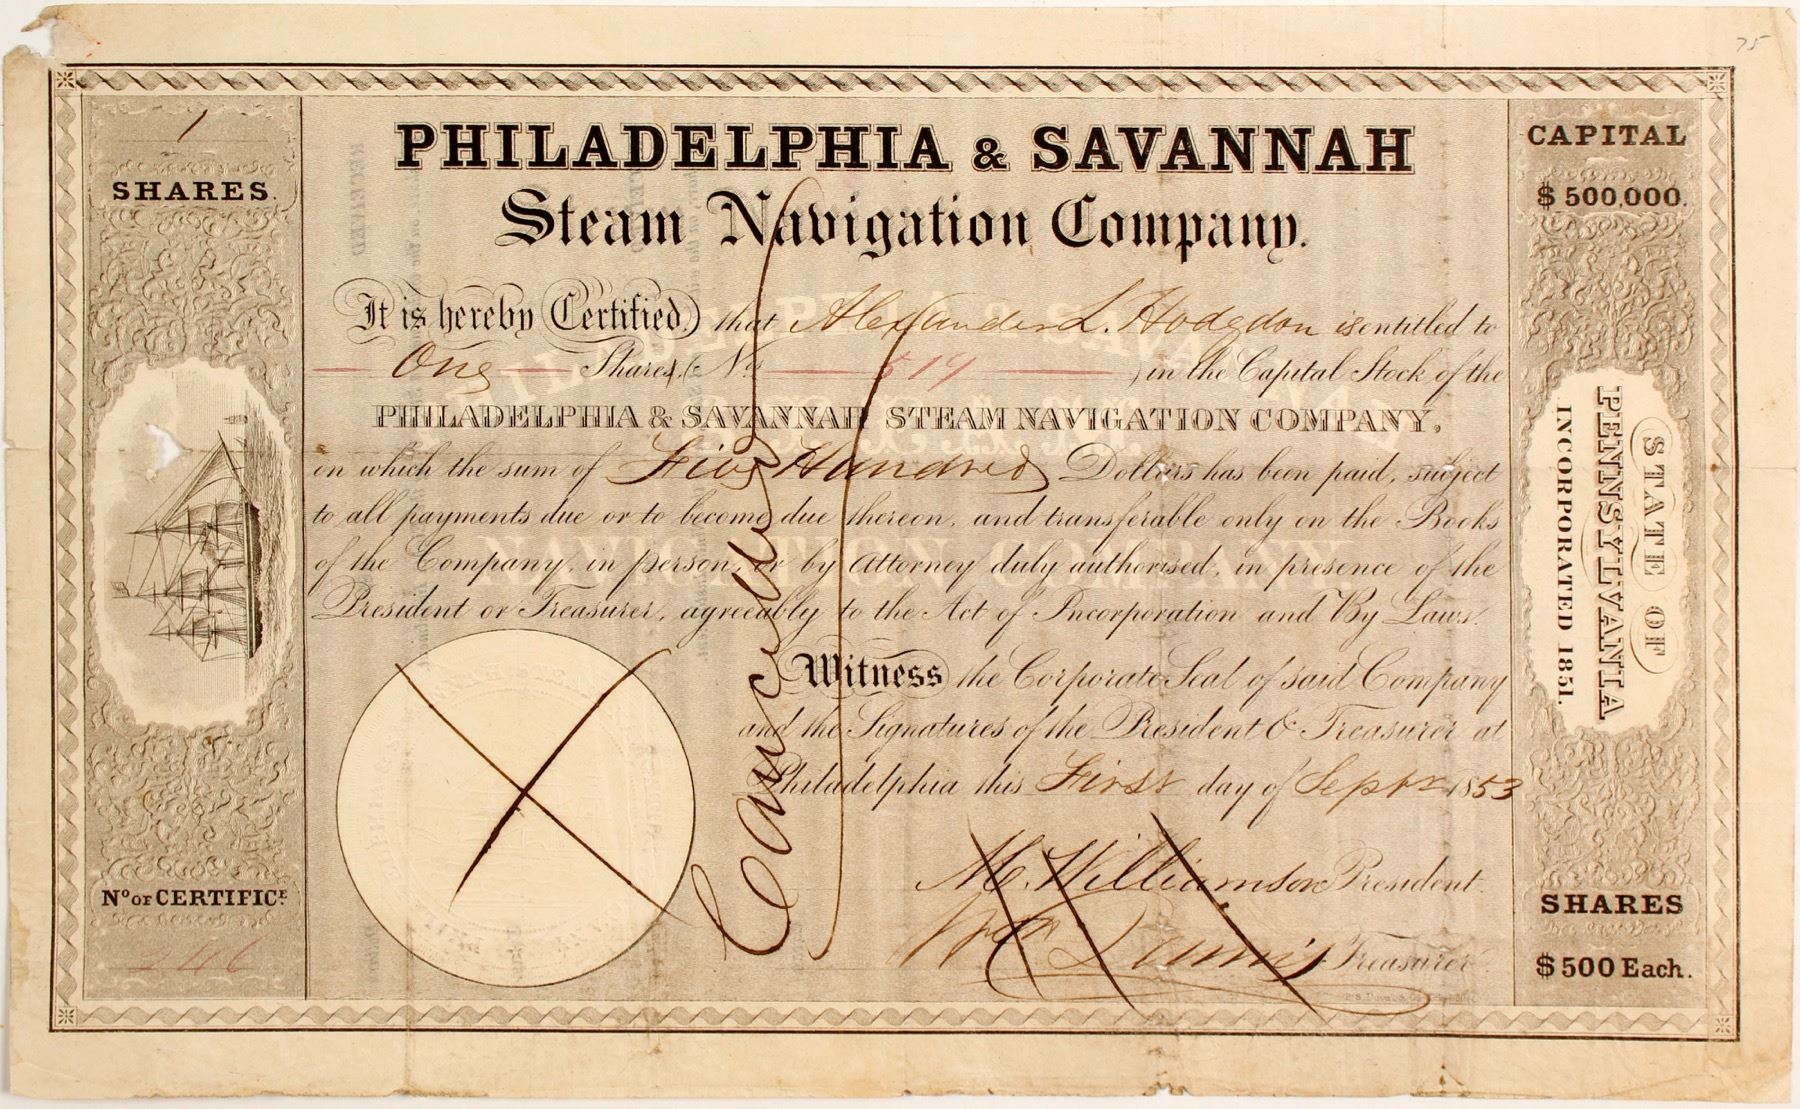 75
1
SHARES.
PHILADELPHIA & SAVANNAH
Steam Navigation Company.
CAPITAL
$500,000.
It is hereby Certified, that Alexander L. Hodgdon is entitled to
One Shares, (No. 519) in the Capital Stock of the
PHILADELPHIA & SAVANNAH STEAM NAVIGATION COMPANY,
on which the sum of Five Hundred Dollars has been paid, subject
to all payments due or to become due thereon, and transferable only on the Books
of the Company, in person, or by Attorney duly authorised, in presence of the
President or Treasurer, agreeably to the Act of Incorporation and By Laws.
Witness the Corporate Seal of said Company
and the Signatures of the President & Treasurer at
Philadelphia this First day of Septr 1853
Cancelled
M. Williamson President.
Treasurer.
No OF CERTIFICE.
246
STATE OF
PENNSYLVANIA
INCORPORATED 1851.
SHARES
$500 Each.